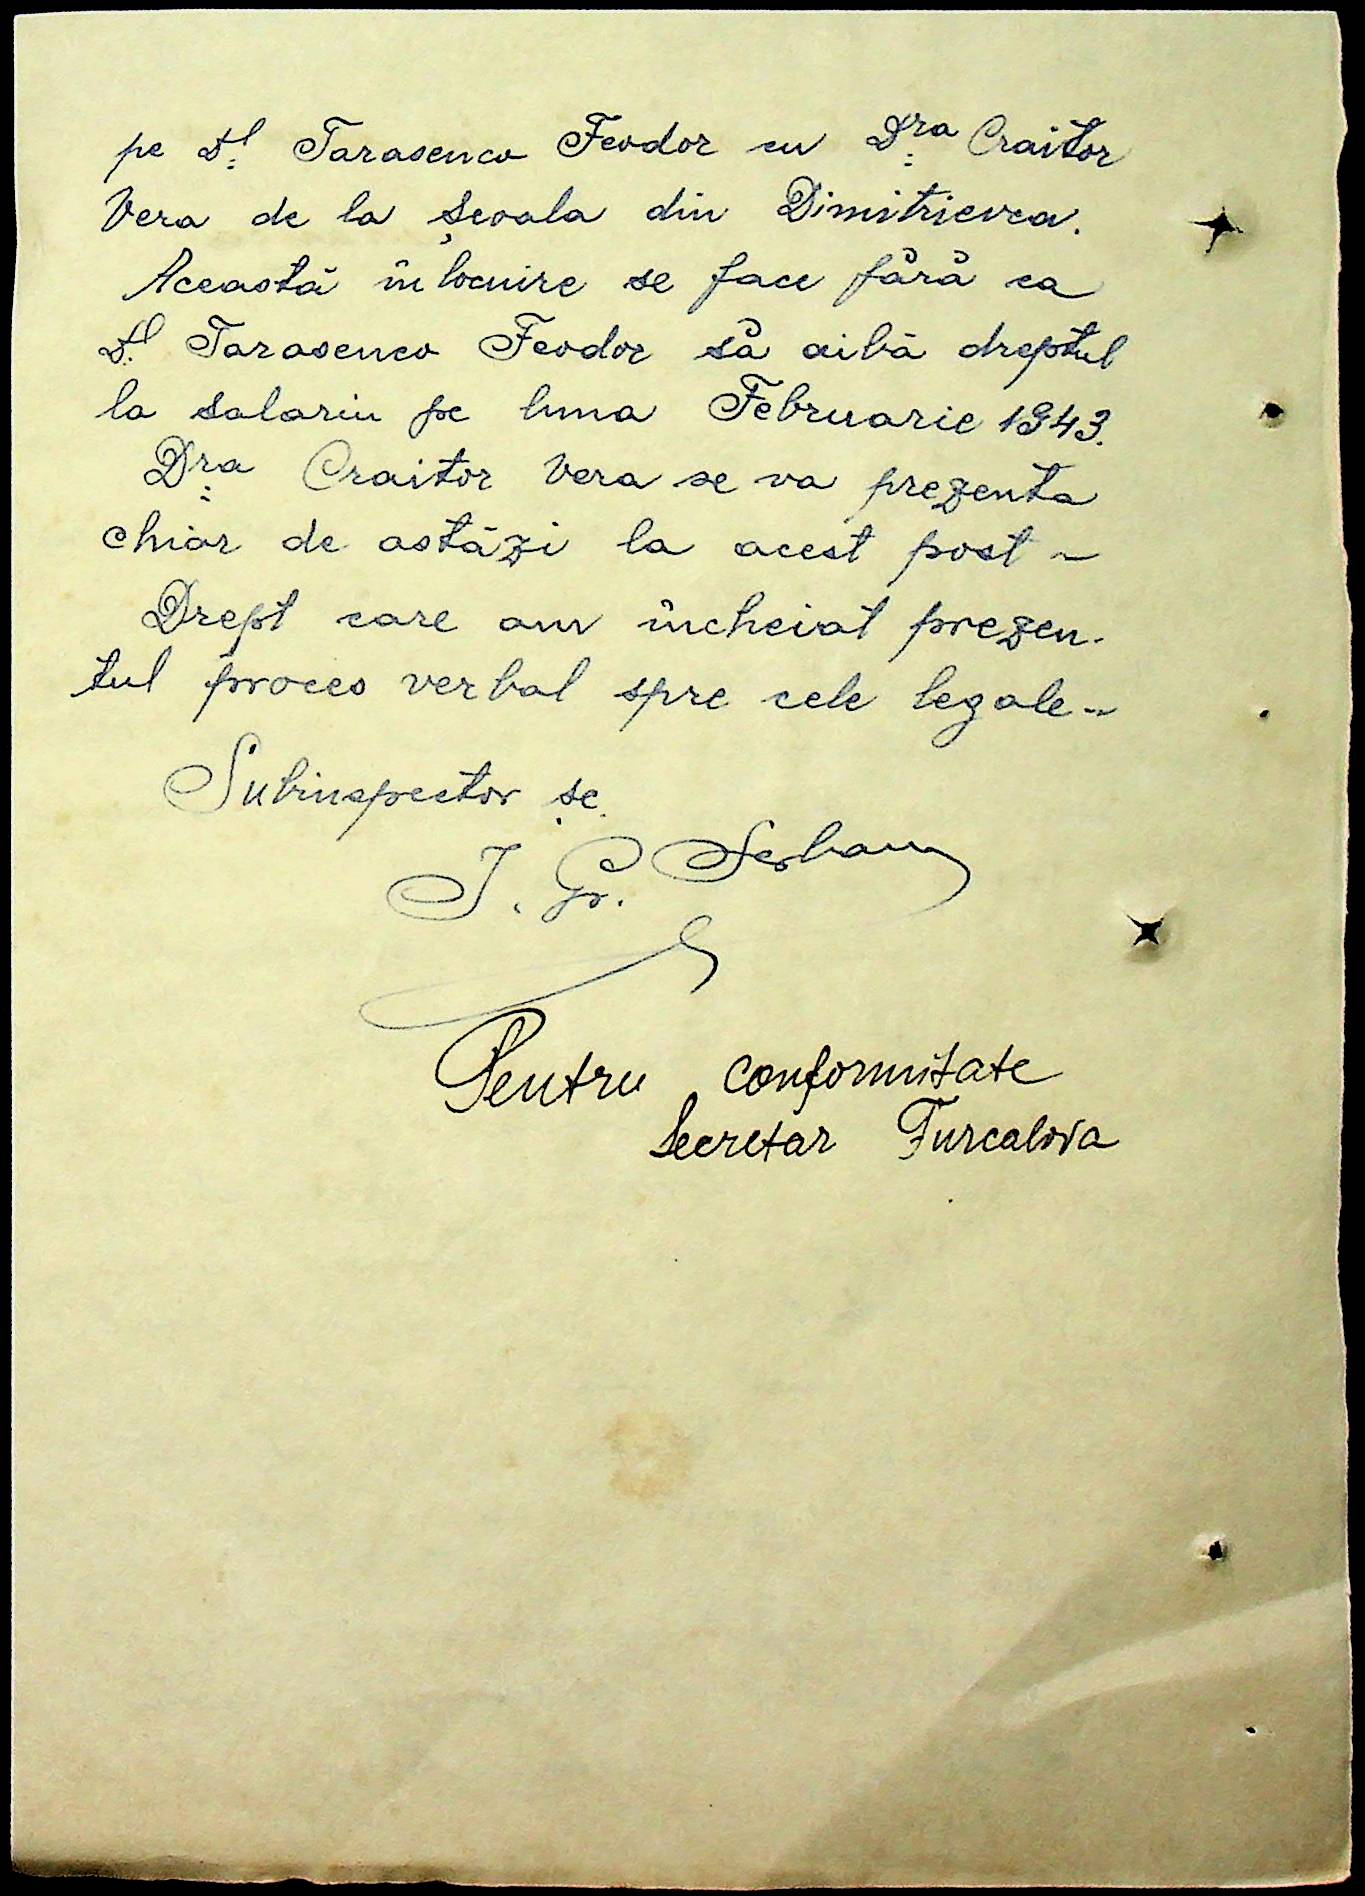 pe Dl Tarasenco Feodor cu Dra Craitor
Vera de la școala din Dimitrievca.
Această înlocuire se face fără ca
Dl Tarasenco Feodor să aibă dreptul
la salariu pe luna Februarie 1943.
Dra Craitor Vera se va prezenta
chiar de astăzi la acest post ~
Drept care am încheiat prezen-
tul proces verbal spre cele legale ~
Subinspector șc.
I. Gr. Serban
Pentru conformitate
Secretar Turcalova